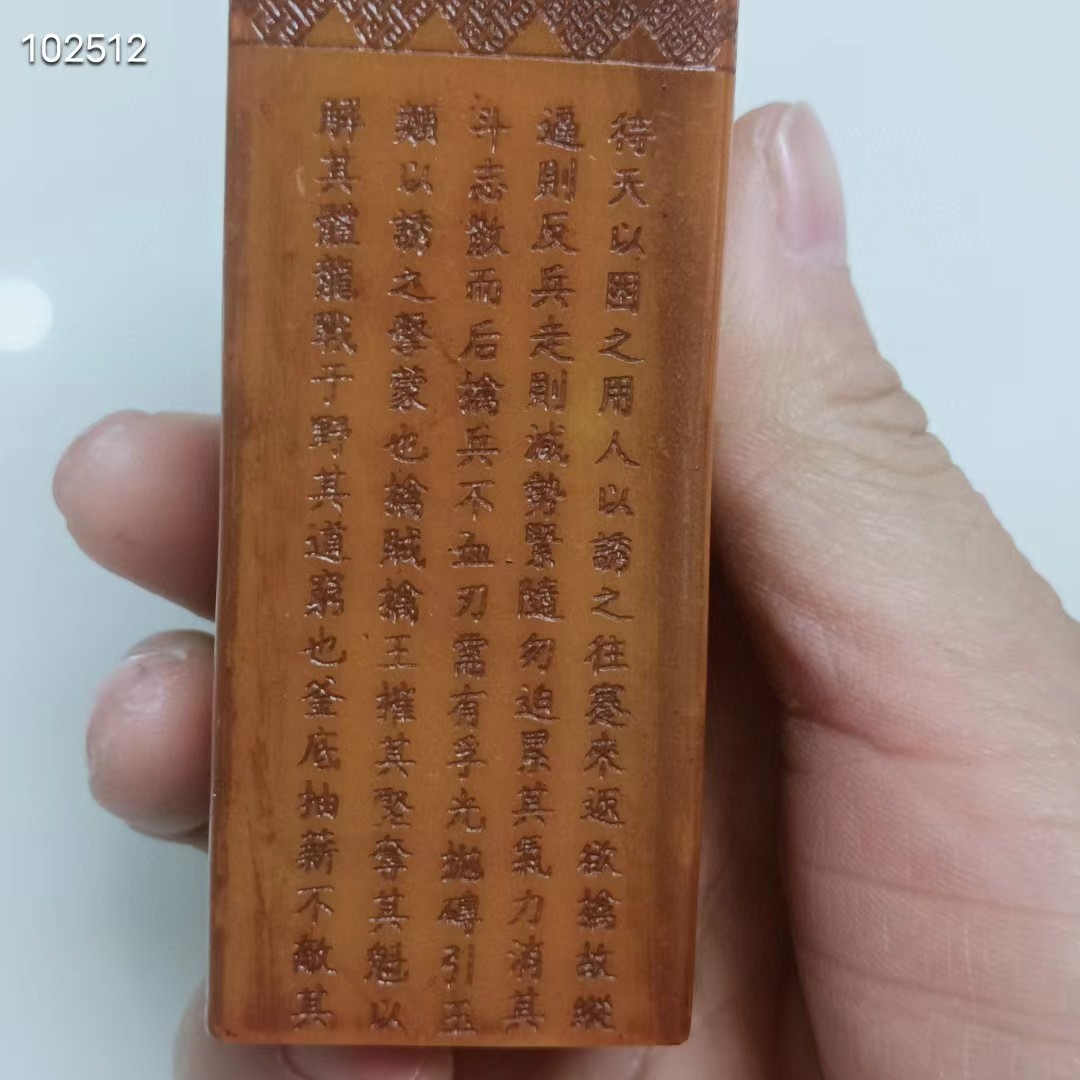 102512
待天以困之用人以誘之往蹇來返欲擒故縱
逼則反兵走則減勢緊隨勿迫累其氣力消其
斗志散而后擒兵不血刃需有孚光拋磚引玉
類以誘之擊蒙也擒賊擒王摧其堅奪其魁以
解其體龍戰于野其道窮也釜底抽薪不敵其